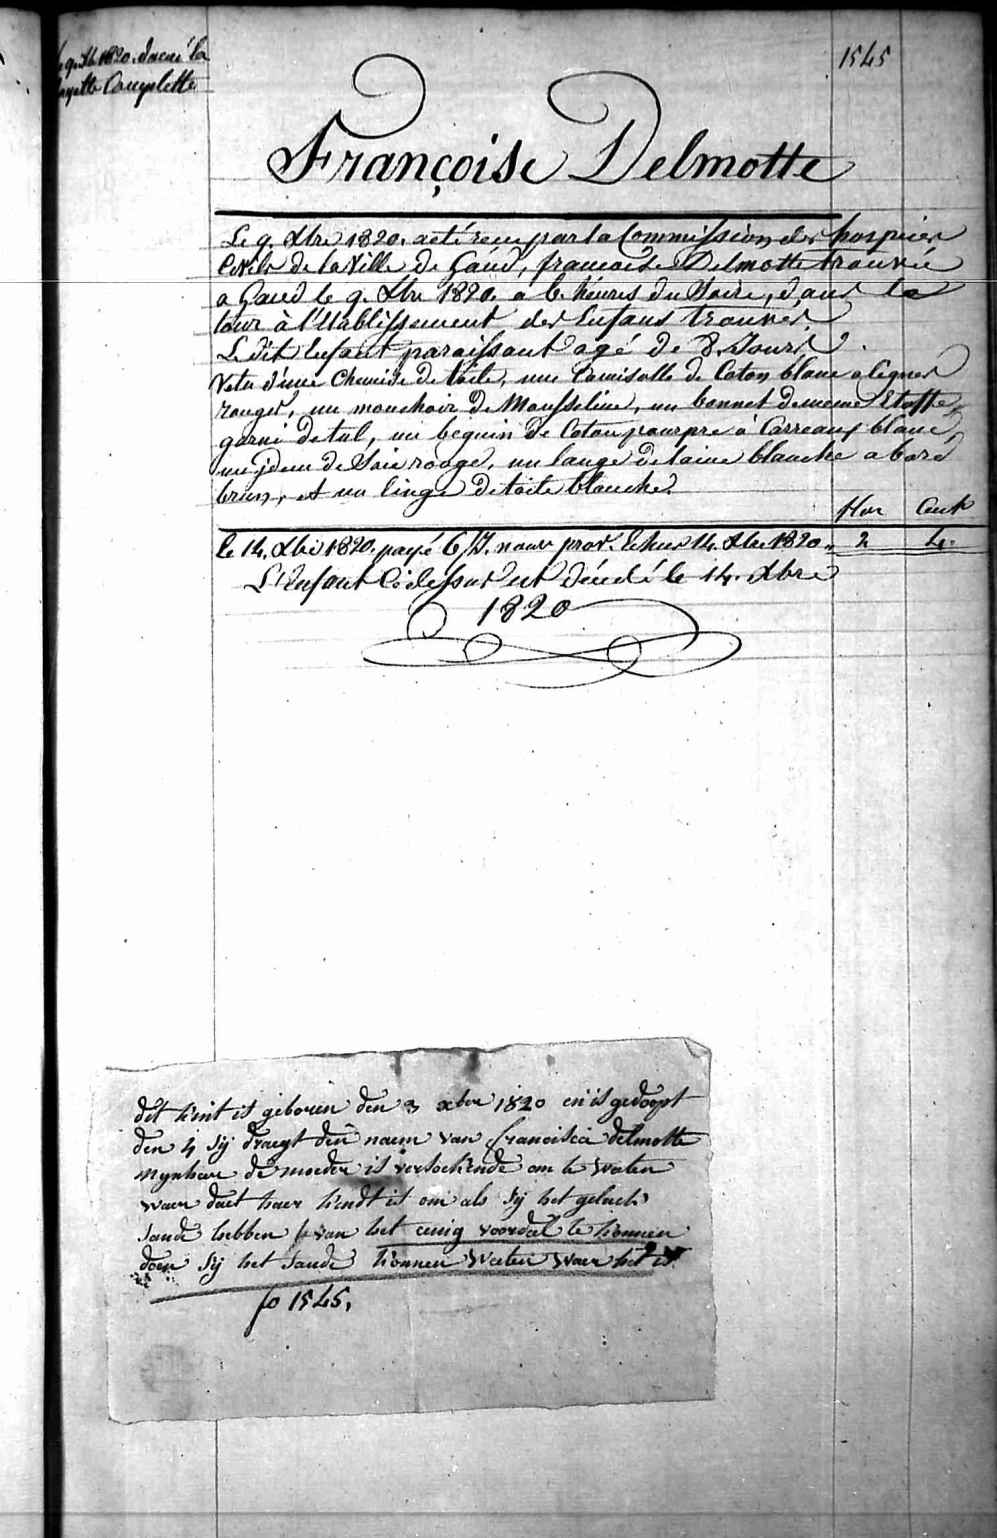 1545
9. Xbre 1820. donné la
layette Complette
Françoise Delmotte
Le 9. Xbre 1820. a eté reçu par la Commission des hospices
Civils de la Ville de Gand, françoise Delmotte trouvée
a Gand le 9. Xbre 1820. a 6. héures du Soire, dans le
tour à l'Etablissement des Enfans trouvés.
Le dit Enfant paraissant agé de 8. Jours.
Vetu d'une Chemise de toile, une Camisolle de Coton blanc a lignes
rouges, un mouchoir de Mousseline, un bonnet de meme Etoffe,
garni de tul, un beguin de Coton pourpre à Carreaux blanc,
un jdem de Soie rouge, un lange de laine blanche a bord
brun, et un linge de toile blanche.
Flor Cents
le 14. Xbre 1820. payé 6/J. nour prov. Echus 14. Xbre 1820. 2 4.
L'Enfant Cidessus est décédé le 14. Xbre
1820
dit kint is geboren den 3 xber 1820 en is gedoopt
den 4 sij draegt den naem van francisca delmotte
mynheer de moeder is versoekende om te weten
waer dact haer kindt is om als sij het geluck
saude hebben van het eenig voordeel te konnen
doen sij het saude konnen weten waer het is
fo 1545.